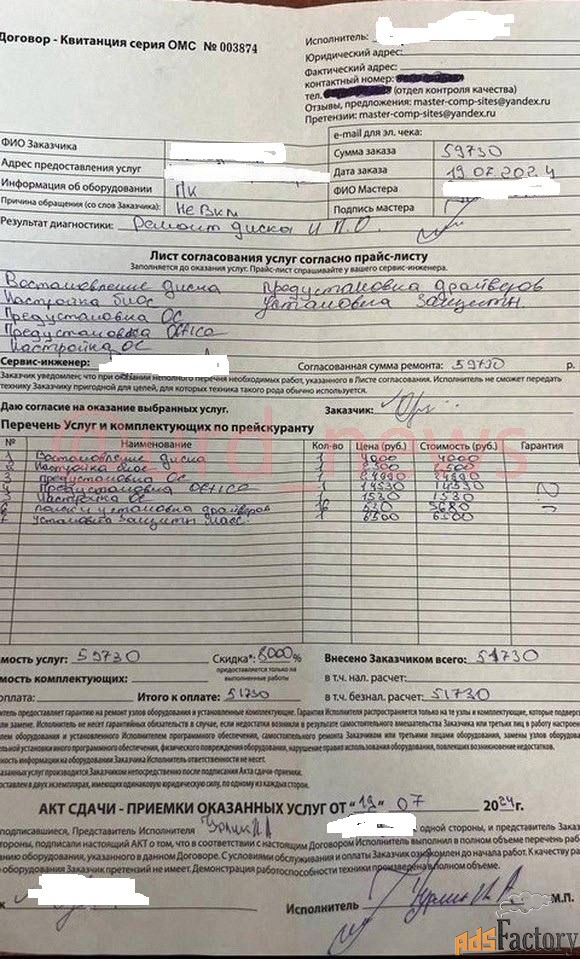 Договор - Квитанция серия ОМС № 003874
Исполнитель:
Юридический адрес:
Фактический адрес:
контактный номер:
тел. (отдел контроля качества)
Отзывы, предложения: master-comp-sites@yandex.ru
Претензии: master-comp-sites@yandex.ru
e-mail для эл. чека:
ФИО Заказчика
Сумма заказа 59730
Адрес предоставления услуг
Дата заказа 19.07.2024
Информация об оборудовании ПК
ФИО Мастера
Причина обращения (со слов Заказчика): Не Вкл
Подпись мастера
Результат диагностики: Ремонт диска и П.О.
Лист согласования услуг согласно прайс-листу
Заполняется до оказания услуг. Прайс-лист спрашивайте у вашего сервис-инженера.
Востановление диска Предустановка драйверов
Настройка биос Установка защиты
Предустановка ОС
Предустановка Office
Настройка ОС
Сервис-инженер: Согласованная сумма ремонта: 59730 р.
Заказчик уведомлен, что при оказании неполного перечня необходимых работ, указанного в Листе согласования. Исполнитель не сможет передать
технику Заказчику пригодной для целей, для которых техника такого рода обычно используется.
Даю согласие на оказание выбранных услуг. Заказчик:
Перечень Услуг и комплектующих по прейскуранту
№ Наименование Кол-во Цена (руб.) Стоимость (руб.) Гарантия
1 Востановление диска 1 4000 4000
2 Настройка биос 1 2500 2500
3 Предустановка ОС 1 24990 24990
4 Предустановка Office 1 14530 14530
5 Настройка ОС 1 1530 1530
6 Поиск и установка драйверов 16 5680
7 Установка защиты 1 6500 6500
@ard_news
мость услуг: 59730 Скидка*: 8000 % Внесено Заказчиком всего: 51730
предоставляется только на выполненные работы
мость комплектующих: в т.ч. нал. расчет:
оплата: Итого к оплате: 51730 в т.ч. безнал. расчет: 51730
тель предоставляет гарантию на ремонт узлов оборудования и установленные комплектующие. Гарантия Исполнителя распространяется только на те узлы и комплектующие, которые подверг
или замене. Исполнитель не несет гарантийных обязательств в случае, если недостатки возникли в результате самостоятельного вмешательства Заказчика или третьих лиц в работу настроен
лем оборудования и установленного Исполнителем программного обеспечения, самостоятельного ремонта Заказчиком или третьими лицами оборудования, замены узлов оборудова
льной установки иного программного обеспечения, физического повреждения оборудования, нарушение правил использования оборудования, повлекших возникновение недостатков.
ность информации на оборудовании Заказчика Исполнитель ответственности не несет.
казанных услуг производится Заказчиком непосредственно после подписания Акта сдачи-приемки.
оставлен в двух экземплярах, имеющих одинаковую юридическую силу, по одному из каждой сторон.
АКТ СДАЧИ - ПРИЕМКИ ОКАЗАННЫХ УСЛУГ ОТ "19" 07 2024г.
подписавшиеся, Представитель Исполнителя одной стороны, и представитель Заказ
тороны, подписали настоящий АКТ о том, что в соответствии с настоящим Договором Исполнитель выполнил в полном объеме перечень раб
анию оборудования, указанного в данном Договоре. С условиями обслуживания и оплаты Заказчик ознакомлен до начала работ. К качеству ра
оборудования Заказчик претензий не имеет. Демонстрация работоспособности техники произведена в полном объеме.
к Исполнитель М.П.
AdsFactory